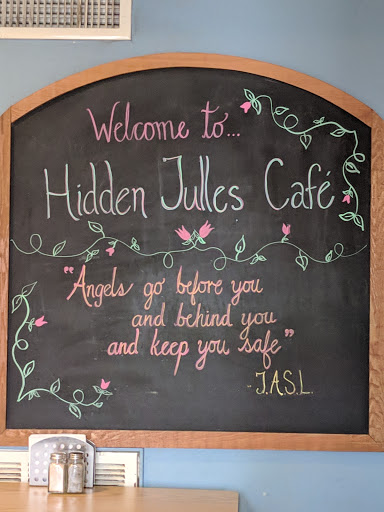 Welcome to...
Hidden Julles Café
"Angels go before you
and behind you
and keep you safe"
- J.A.S.L.